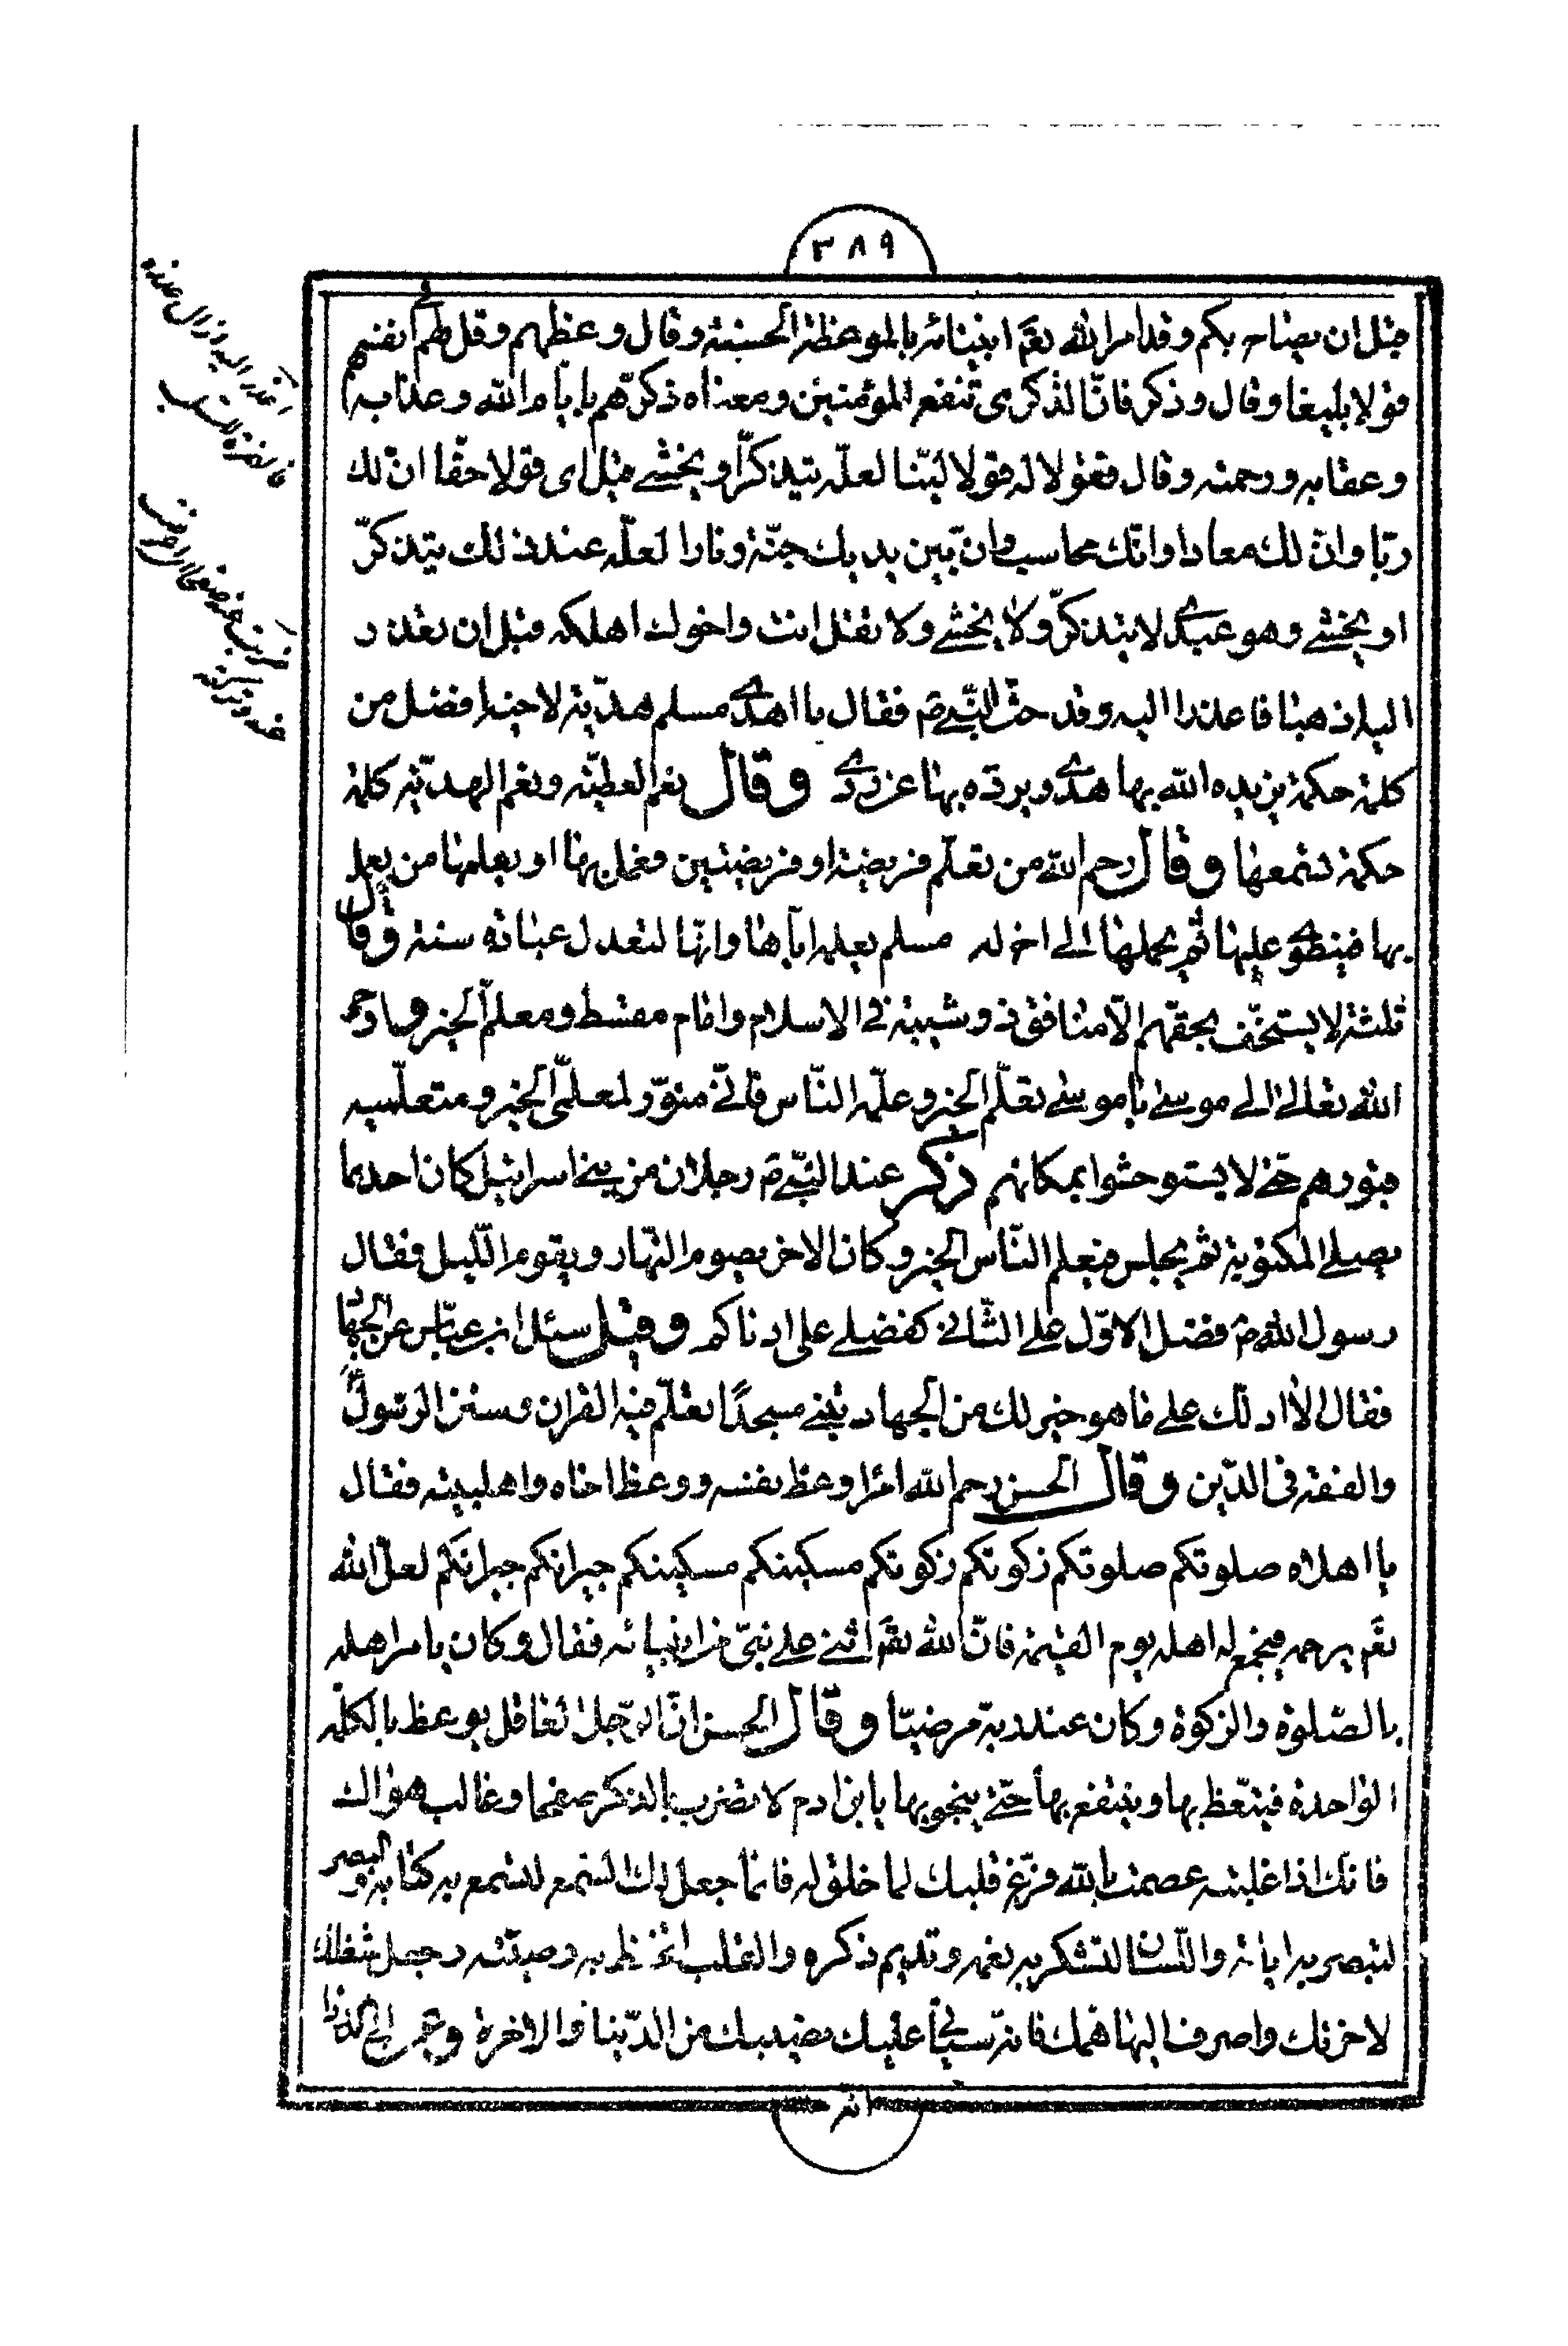 ٣٨٩
قبل ان يصاح بكم وقد امر الله تعٓ انبيائه بالموعظة الحسنة وقال وعظهم وقل لهم في انفسهم
قولا بليغا وقال وذكر فانّ الذكرى تنفع المؤمنين ومعناه ذكرّهم بايام الله وعذابه
وعقابه ورحمته وقال فقولا له قولا ليّنا لعلّه يتذكّر او يخشى قيل اى قولا حقا انّ لك
ربّا وانّ لك معادا وانّك محاسب وانّ بين يديك جنّة ونارا لعلّه عند ذلك يتذكّر
او يخشى وهو عبدى لا يتذكّر ولا يخشى ولا تقل انت واخوك اهلكه قبل ان تعذر
اليه اذهبا فاعذرا اليه وقد حثّ النّبى صٓ فقال ما اهدى مسلم هديّة لاخيه افضل من
كلمة حكمة يزيده الله بها هدى ويردّه بها عن ردى وقال نعم العطيّة ونعم الهديّة كلمة
حكمة تسمعها وقال رحم الله من تعلّم فريضة او فريضتين فعمل بهما او يعلمها من يعمل
بها فينطوى عليها ثم يحملها الى اخ له مسلم يعلمه اياها وانّها لتعدل عبادة سنة وقال
ثلثة لا يستخّف بحقهم الّا منافق ذو شيبة فى الاسلام وامام مقسط ومعلّم الخير واوحى
الله تعالى الى موسى يا موسى تعلّم الخير وعلّمه النّاس فانّى منوّر لمعلّمى الخير ومتعلّميه
قبورهم حتى لا يستوحشوا بمكانهم ذكر عند النّبى صٓ رجلان من بنى اسرائيل كان احدهما
يصلى المكتوبة ثم يجلس فيعلم النّاس الخير وكان الاخر يصوم النّهار ويقوم اللّيل فقال
رسول الله صٓ فضل الاوّل على الثّانى كفضلى على ادناكم وقيل سئل ابن عبّاس عن الجهاد
فقال الا ادلّك على ما هو خير لك من الجهاد تبنى مسجدًا تعلّم فيه القران وسنن الرسول
والفقه فى الدّين وقال الحسن رحم الله امرا وعظ نفسه ووعظ اخاه واهل بيته فقال
يا اهلاه صلوتكم صلوتكم زكوتكم زكوتكم مسكينكم مسكينكم جيرانكم جيرانكم لعلّ الله
تعٓ يرحمه فيجمع له اهله يوم القيمة فانّ الله تعٓ اثنى على نبىّ من انبيائه فقال وكان يامر اهله
بالصّلوة والزكوة وكان عند ربه مرضيّا وقال الحسن انّ الرّجل الغافل يوعظ بالكلمة
الواحدة فيتّعظ بها وينتفع بها حتّى ينجو بها يابن ادم لا تضرب بالذكر صفحا وغالب هواك
فانّك اذا غلبته عصمت بالله وفرّغ قلبك لما خلق له فانما جعل لك السّمع لتسمع به كتابه والبصر
لتبصر به اياته واللّسان لتشكر به نعمه وتديم ذكره والقلب لتحفظ به وصيّته وجعل شغلك
لاخرتك واصرف اليها همك فانه سيأتى عليك نصيبك من الدّنيا والاخرة
انه